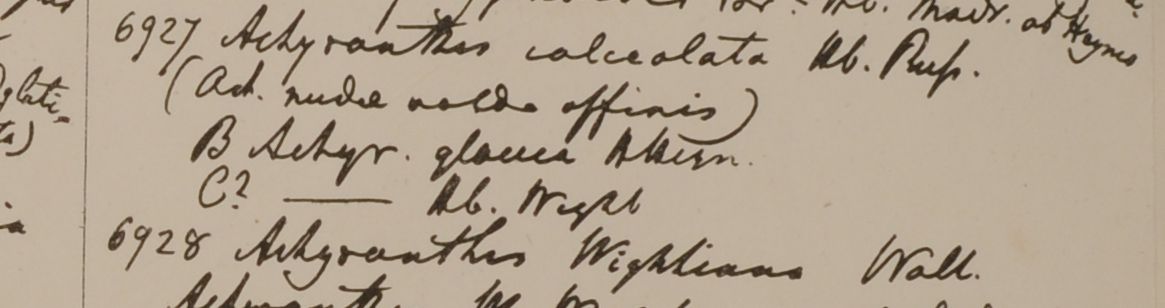 Hb. Madr. ab Heyne
6927 Achyranthes calceolata Hb. Russ.
(Ach. nudae valde affinis)
B Achyr. glauca Hb Heyn.
C? —— Hb. Wight
6928 Achyranthes Wightiana Wall.